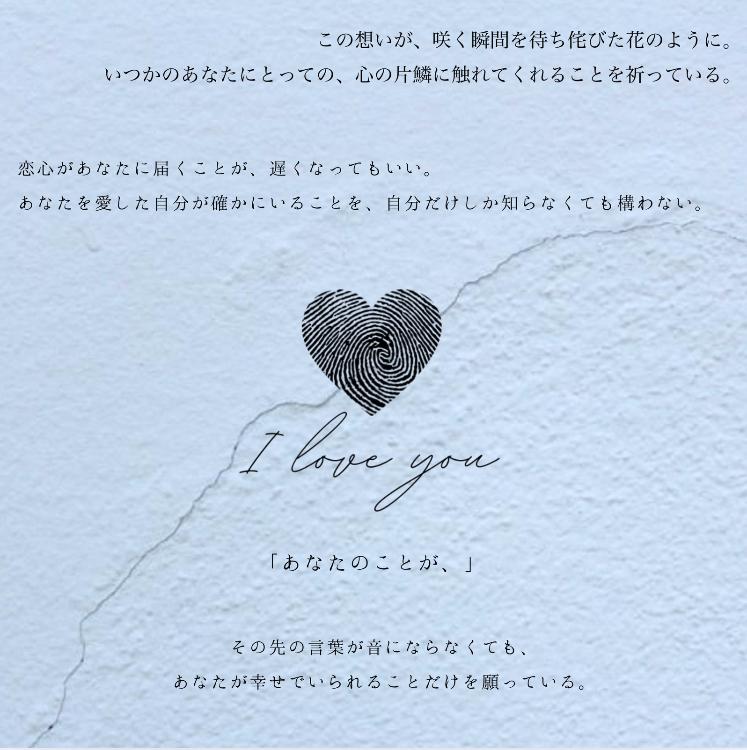 この想いが、咲く瞬間を待ち侘びた花のように。
いつかのあなたにとっての、心の片鱗に触れてくれることを祈っている。
恋心があなたに届くことが、遅くなってもいい。
あなたを愛した自分が確かにいることを、自分だけしか知らなくても構わない。
I love you
「あなたのことが、」
その先の言葉が音にならなくても、
あなたが幸せでいられることだけを願っている。